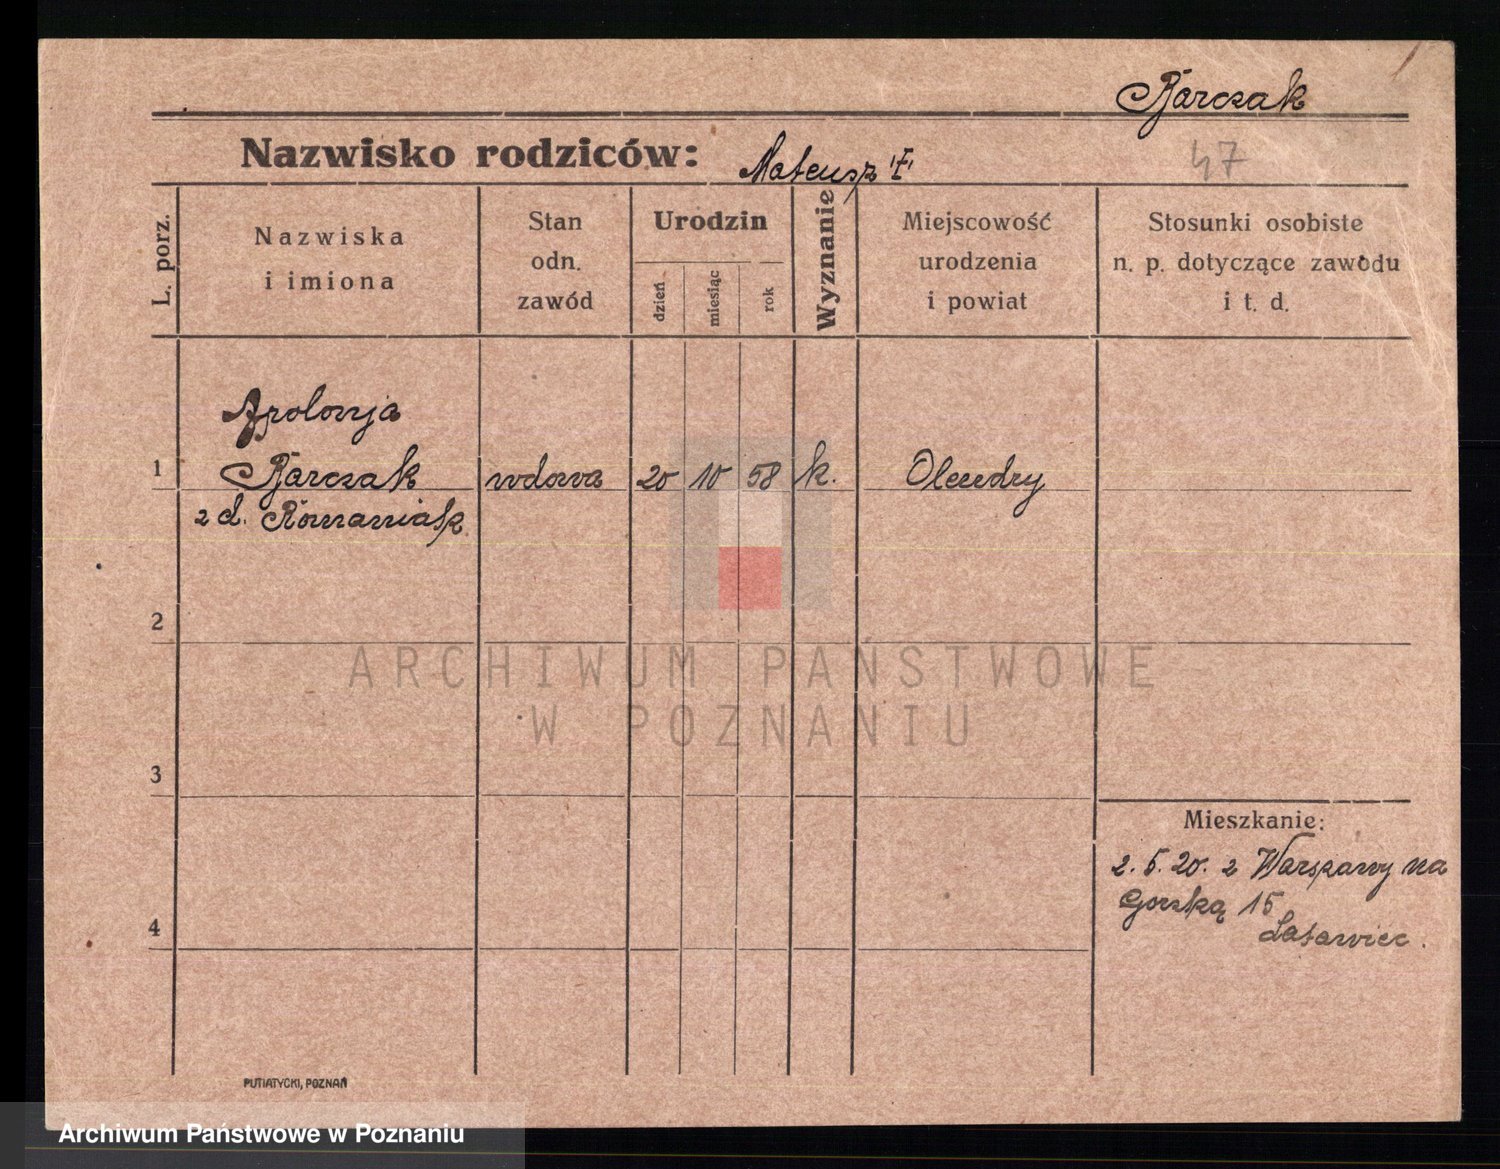 Barczak
47
Nazwisko rodziców: Mateusz
L. porz.
Nazwiska
i imiona
Stan
odn.
zawód
Urodzin
dzień
miesiąc
rok
Wyznanie
Miejscowość
urodzenia
i powiat
Stosunki osobiste
n. p. dotyczące zawodu
i t. d.
Apolonja
1 Barczak wdowa 20 10 58 k. Olendry
z d. Romaniak
2
ARCHIWUM PAŃSTWOWE
W POZNANIU
3
Mieszkanie:
2. 5. 20. z Warszawy na
Gorską 15
4
PUTIATYCKI, POZNAŃ
Archiwum Państwowe w Poznaniu